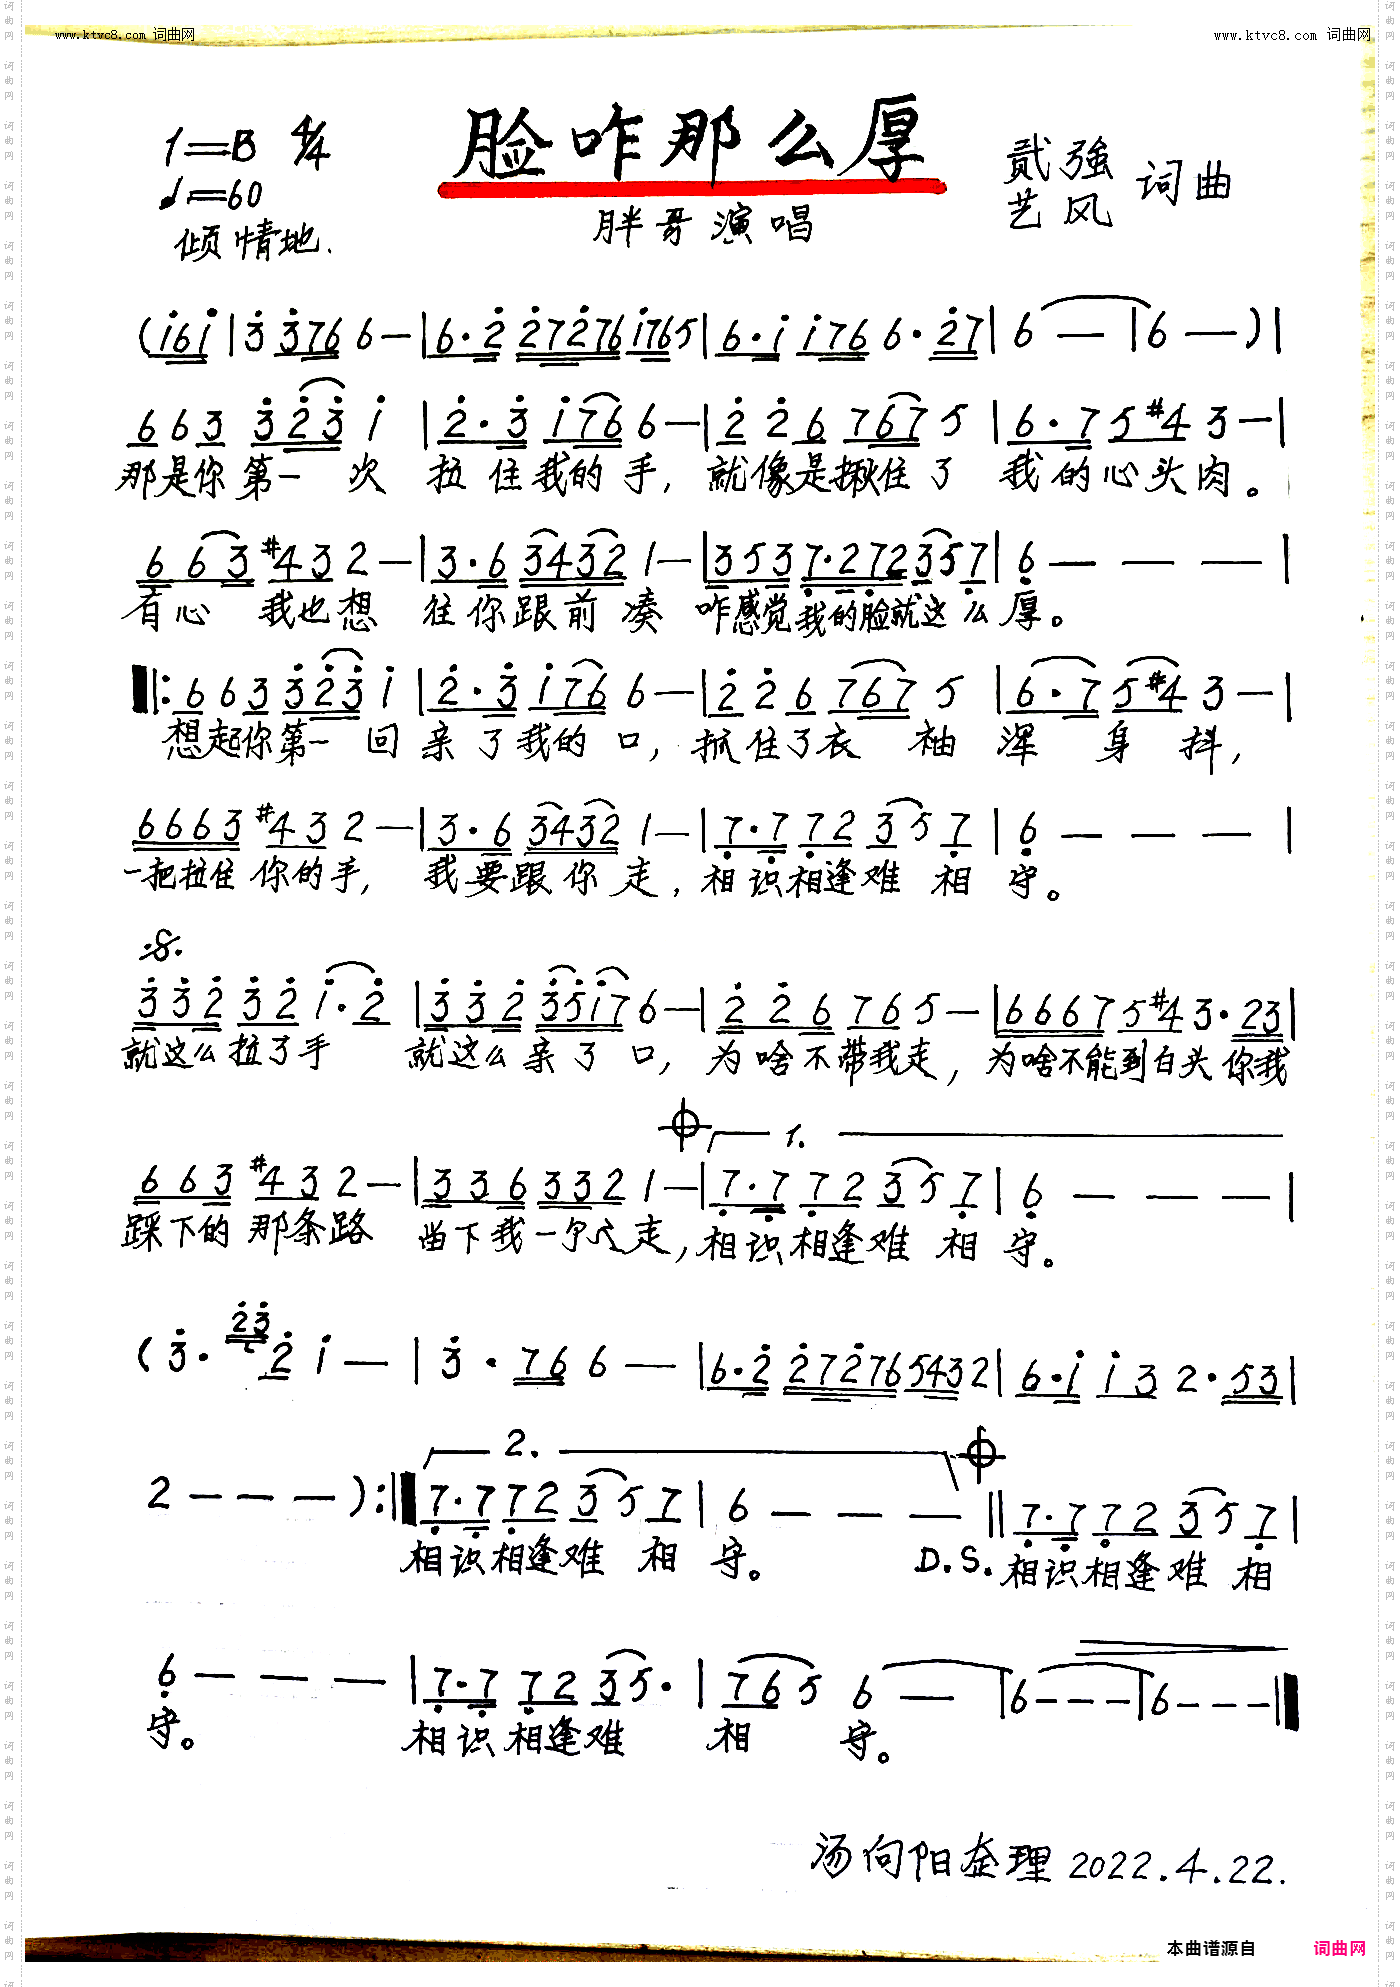 www.ktvc8.com 词曲网
www.ktvc8.com 词曲网
1=B 4/4
脸咋那么厚
贰强 词曲
艺风
♩=60
胖哥演唱
倾情地.
(i6i|3 3 7 6 6 —|6·2 2 7 2 7 6 i 7 6 5|6·i i 7 6 6·2 7|6 —|6 —)|
6 6 3 3 2 3 i|2·3 i 7 6 6 —|2 2 6 7 6 7 5|6·7 5 #4 3 —|
那是你第一次 拉住我的手, 就像是揪住了 我的心头肉。
6 6 3 #4 3 2 —|3·6 3 4 3 2 1 —|3 5 3 7·2 7 2 3 5 7|6 — — —|
有心 我也想 往你跟前凑 咋感觉我的脸就这么厚。
|:6 6 3 3 2 3 i|2·3 i 7 6 6 —|2 2 6 7 6 7 5|6·7 5 #4 3 —|
想起你第一回 亲了我的口, 抓住了衣袖 浑身抖,
6 6 6 3 #4 3 2 —|3·6 3 4 3 2 1 —|7·7 7 2 3 5 7|6 — — —|
一把拉住你的手, 我要跟你走, 相识相逢难相守。
𝄋
3 3 2 3 2 i·2|3 3 2 3 5 i 7 6 —|2 2 6 7 6 5 —|6 6 6 7 5 #4 3·2 3|
就这么拉了手 就这么亲了口, 为啥不带我走, 为啥不能到白头 你我
𝄌 1.
6 6 3 #4 3 2 —|3 3 6 3 3 2 1 —|7·7 7 2 3 5 7|6 — — —|
踩下的那条路 当下我一个人走, 相识相逢难相守。
2 3
(3· 2 i —|3·7 6 6 —|6·2 2 7 2 7 6 5 4 3 2|6·i i 3 2·5 3|
2. 𝄌
2 — — —):|7·7 7 2 3 5 7|6 — — —‖7·7 7 2 3 5 7|
相识相逢难相守。 D.S. 相识相逢难相
6 — — —|7·7 7 2 3 5·|7 6 5 6 —|6 - - -|6 - - -‖
守。 相识相逢难 相 守。
汤向阳整理 2022.4.22.
本曲谱源自 词曲网